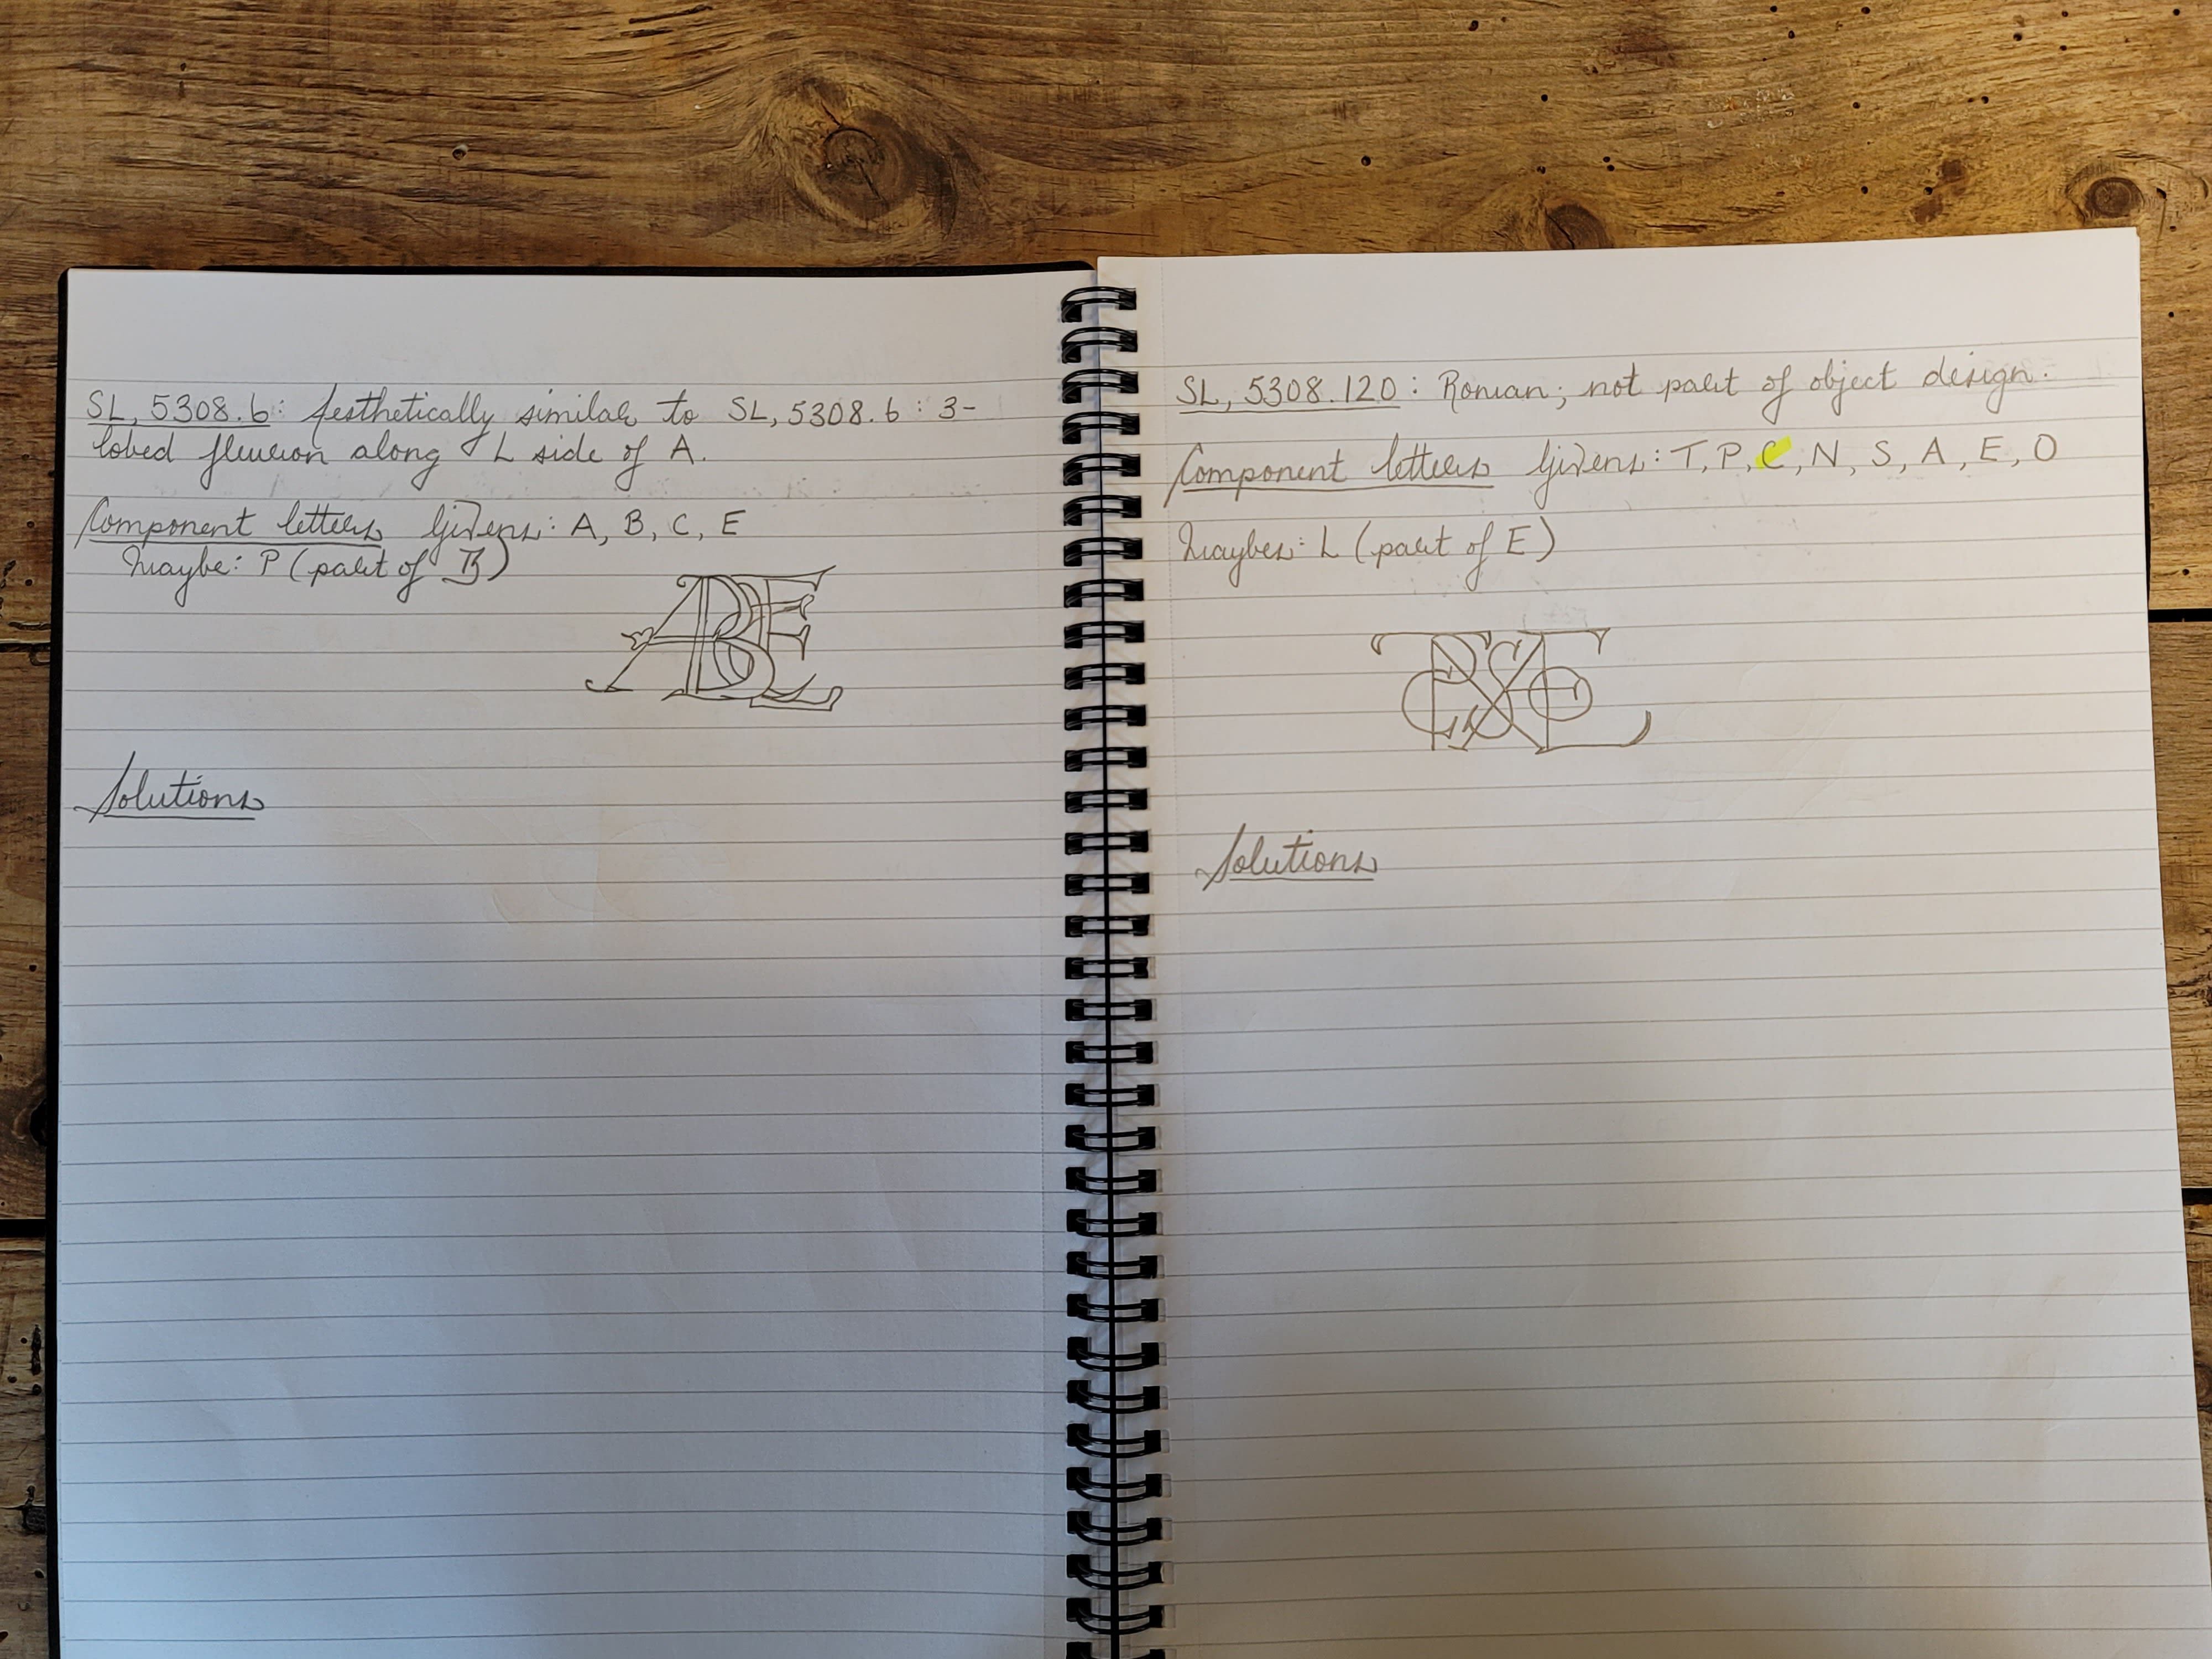 SL, 5308.6: Aesthetically similar to SL, 5308.6 : 3-
lobed fleuron along L side of A.
Component letters Givens: A, B, C, E
Maybe: P (part of B)
ABE
Solutions
SL, 5308.120: Roman; not part of object design.
Component letters Givens: T, P, C, N, S, A, E, O
Maybes: L (part of E)
Solutions